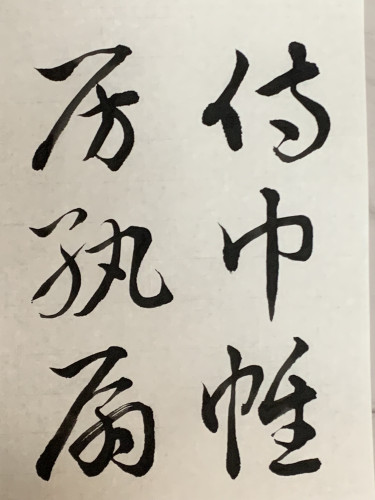 侍巾帷
房紈扇